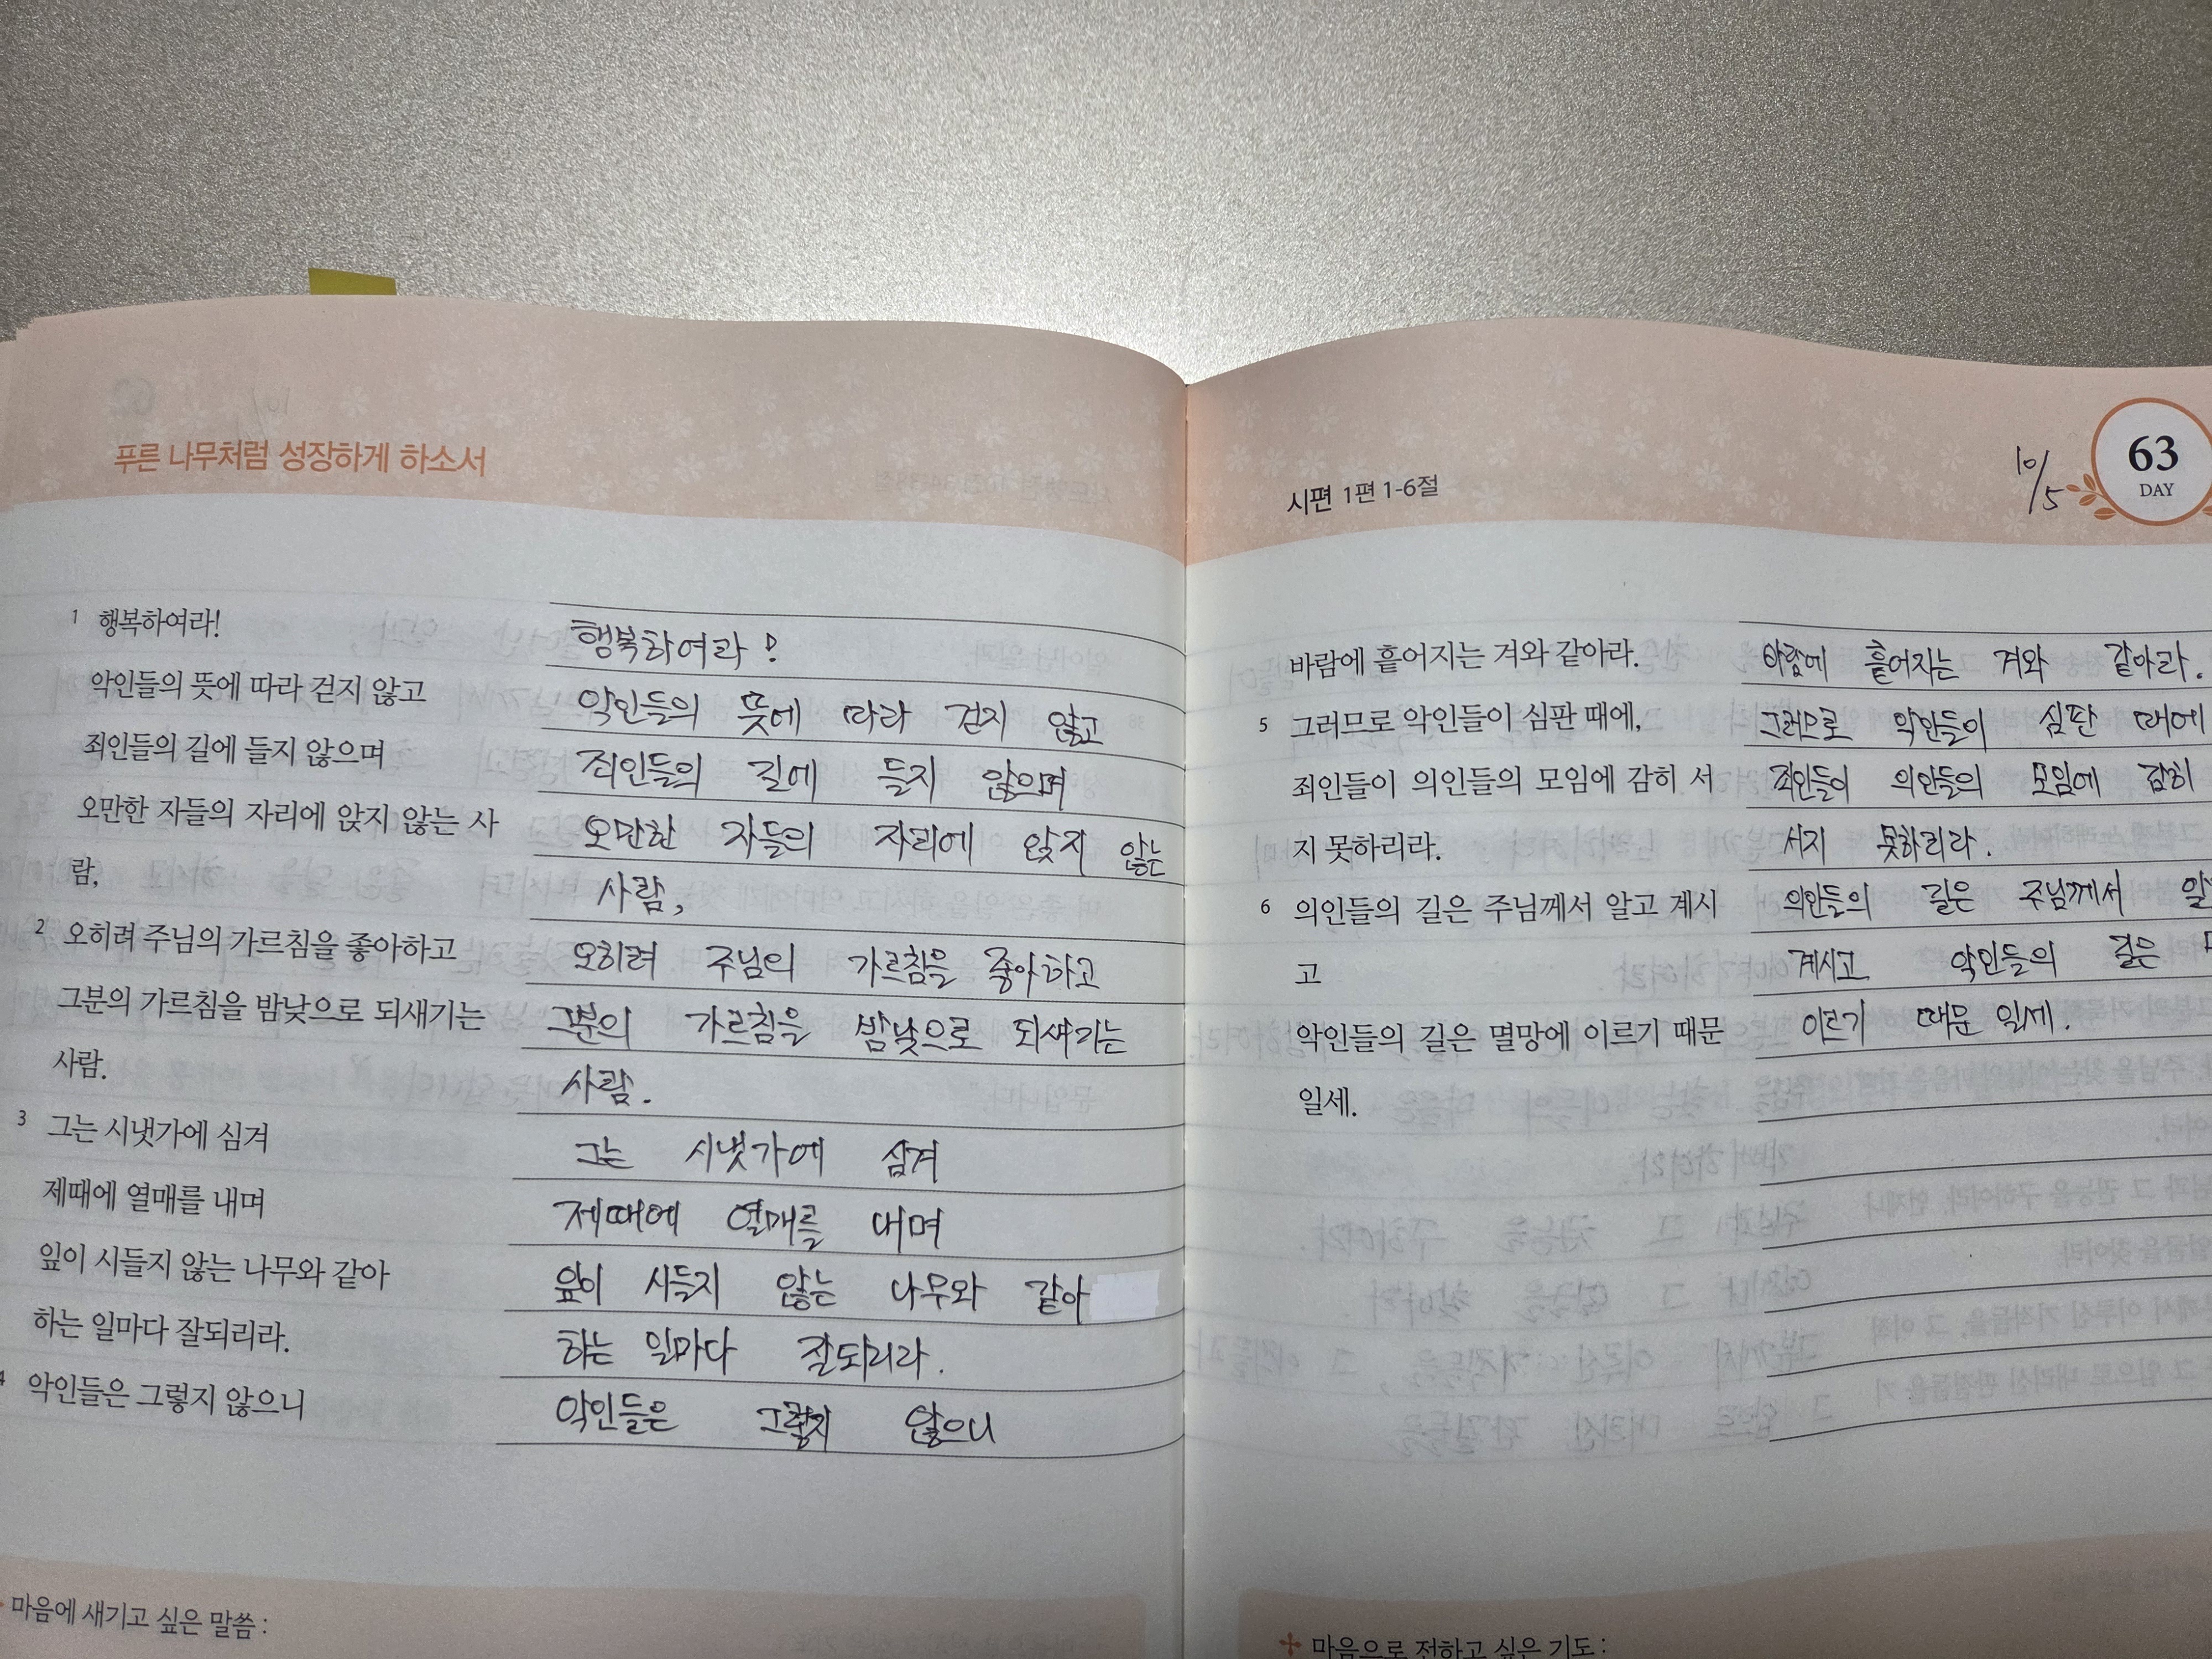 푸른 나무처럼 성장하게 하소서
1 행복하여라!
악인들의 뜻에 따라 걷지 않고
죄인들의 길에 들지 않으며
오만한 자들의 자리에 앉지 않는 사
람,
2 오히려 주님의 가르침을 좋아하고
그분의 가르침을 밤낮으로 되새기는
사람.
3 그는 시냇가에 심겨
제때에 열매를 내며
잎이 시들지 않는 나무와 같아
하는 일마다 잘되리라.
4 악인들은 그렇지 않으니
행복하여라!
악인들의 뜻에 따라 걷지 않고
죄인들의 길에 들지 않으며
오만한 자들의 자리에 앉지 않는
사람,
오히려 주님의 가르침을 좋아하고
그분의 가르침을 밤낮으로 되새기는
사람.
그는 시냇가에 심겨
제때에 열매를 내며
잎이 시들지 않는 나무와 같아
하는 일마다 잘되리라.
악인들은 그렇지 않으니
마음에 새기고 싶은 말씀 :
시편 1편 1-6절
10/5
63
DAY
바람에 흩어지는 겨와 같아라.
5 그러므로 악인들이 심판 때에,
죄인들이 의인들의 모임에 감히 서
지 못하리라.
6 의인들의 길은 주님께서 알고 계시
고
악인들의 길은 멸망에 이르기 때문
일세.
바람에 흩어지는 겨와 같아라.
그러므로 악인들이 심판 때에
죄인들이 의인들의 모임에 감히
서지 못하리라.
의인들의 길은 주님께서
계시고 악인들의 길은
이르기 때문 일세.
마음으로 전하고 싶은 기도 :